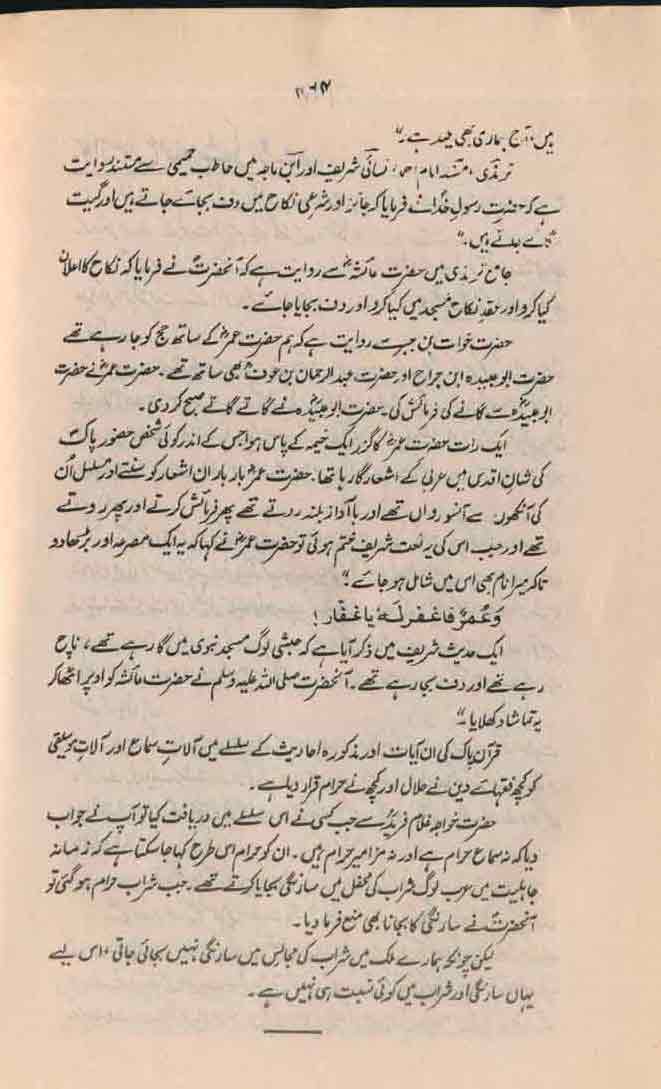 ۲۶۴
ہیں، آج ہماری بھی عید ہے۔"
ترمذی، مسند امام احمد، نسائی شریف اور ابن ماجہ میں حاطب جمیمی سے مستند روایت
ہے کہ حضرت رسول خداؐ نے فرمایا کہ جائز اور شرعی نکاح میں دف بجائے جاتے ہیں اور گیت
گائے جاتے ہیں۔"
جامع ترمذی میں حضرت عائشہؓ سے روایت ہے کہ آنحضرتؐ نے فرمایا کہ نکاح کا اعلان
کیا کرو اور عقدِ نکاح مسجد میں کیا کرو اور دف بجایا جائے۔
حضرت خوات بن جبیر سے روایت ہے کہ ہم حضرت عمرؓ کے ساتھ حج کو جا رہے تھے
حضرت ابو عبیدہ ابن جراح اور حضرت عبدالرحمان بن عوفؓ بھی ساتھ تھے۔ حضرت عمرؓ نے حضرت
ابو عبیدہؓ سے گانے کی فرمائش کی۔ حضرت ابو عبیدہؓ نے گاتے گاتے صبح کر دی۔
ایک رات حضرت عمرؓ کا گزر ایک خیمہ کے پاس ہوا جس کے اندر کوئی شخص حضور پاک
کی شانِ اقدس میں عربی کے اشعار گا رہا تھا۔ حضرت عمرؓ بار بار ان اشعار کو سنتے اور مسلسل اُن
کی آنکھوں سے آنسو رواں تھے اور با آواز بلند روتے تھے پھر فرمائش کرتے اور پھر روتے
تھے اور جب اس کی یہ نعت شریف ختم ہوئی تو حضرت عمرؓ نے کہا کہ یہ ایک مصرعہ اور بڑھا دو
تاکہ میرا نام بھی اس میں شامل ہو جائے۔"
وَعُمَرُ فاغفر لَہٗ یا غفار!
ایک حدیث شریف میں ذکر آیا ہے کہ حبشی لوگ مسجد نبوی میں گا رہے تھے، ناچ
رہے تھے اور دف بجا رہے تھے۔ آنحضرت صلی اللہ علیہ وسلم نے حضرت عائشہ کو اوپر اٹھا کر
یہ تماشا دکھلایا۔"
قرآن پاک کی ان آیات اور مذکورہ احادیث کے سلسلے میں آلاتِ سماع اور آلاتِ موسیقی
کو کچھ فقہائے دین نے حلال اور کچھ نے حرام قرار دیا ہے۔
حضرت خواجہ غلام فریدؒ سے جب کسی نے اس سلسلے میں دریافت کیا تو آپ نے جواب
دیا کہ نہ سماع حرام ہے اور نہ مزامیر حرام ہیں۔ ان کو حرام اس طرح کہا جا سکتا ہے کہ زمانہ
جاہلیت میں عرب لوگ شراب کی محفل میں سارنگی بجایا کرتے تھے۔ جب شراب حرام ہو گئی تو
آنحضرتؐ نے سارنگی کا بجانا بھی منع فرما دیا۔
لیکن چونکہ ہمارے ملک میں شراب کی مجالس میں سارنگی نہیں بجائی جاتی، اس لیے
یہاں سارنگی اور شراب میں کوئی نسبت ہی نہیں ہے۔